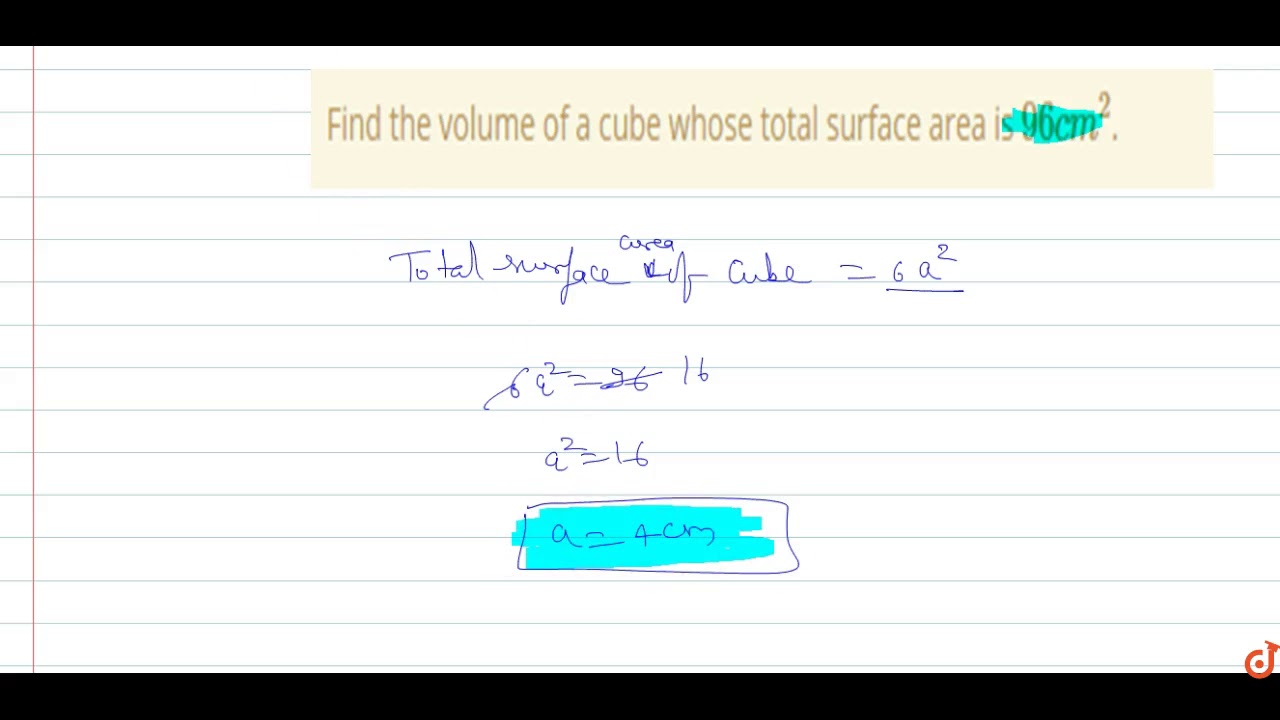 Find the volume of a cube whose total surface area is 96cm².
Total surface area of cube = 6a²
6a² = 96 16
a² = 16
a = 4cm